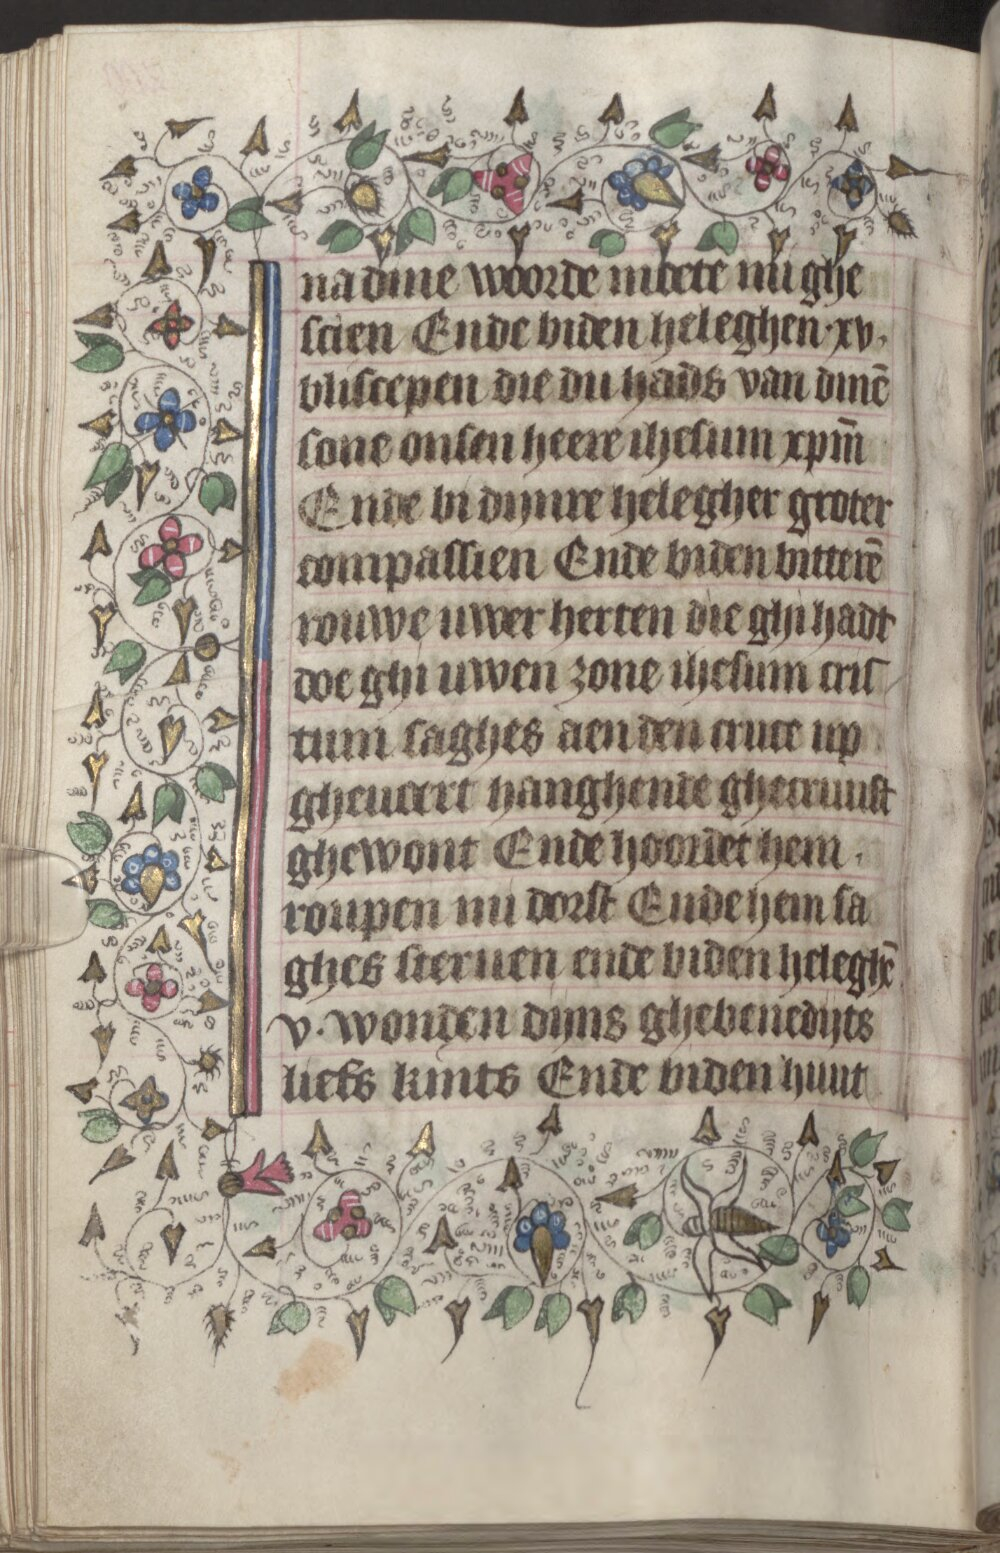 na dine woorde moete mi ghe
scien Ende biden heleghen ·xv·
bliscepen die du hads van dinē
sone onsen heere ihesum xpm̄
Ende bi dijnre helegher groter
compassien Ende biden bitterē
rouwe uwer herten die ghi hadt
doe ghi uwen zone ihesum cris
tum saghes aen den cruce up
gheuaert hanghende ghecruust
ghewont Ende hoordet hem
roupen mi dorst Ende hem sa
ghes steruen ende biden heleghē
v· wonden dijns ghebenedijts
liefs kints Ende biden huut